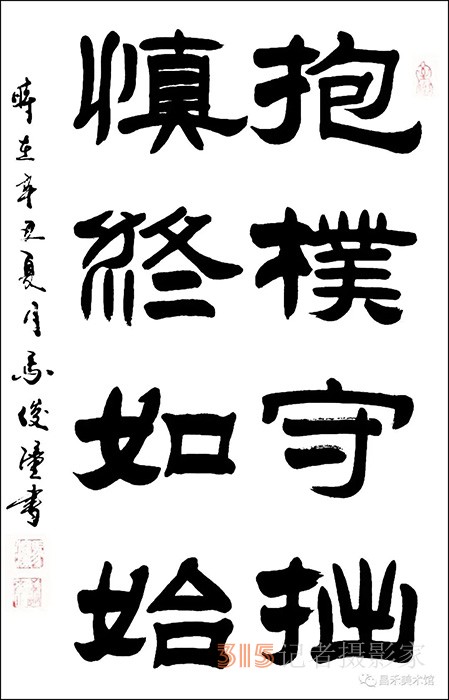 抱樸守拙
慎終如始
時在辛丑夏月馬俊書
315记者摄影家
昌禾美术馆